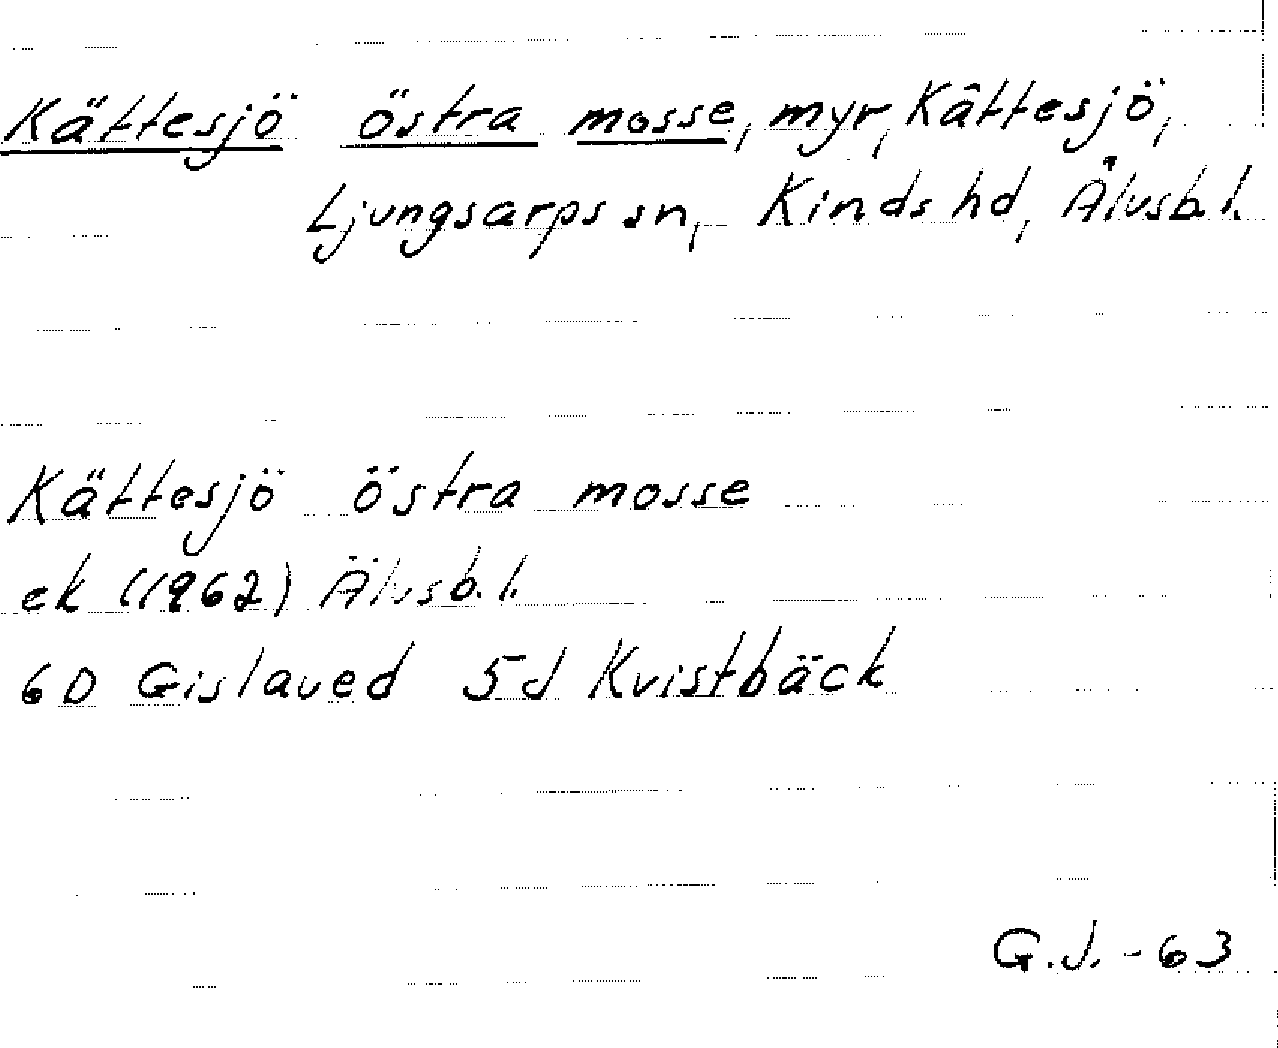 Kättesjö östra mosse, myr, Kättesjö,
Ljungsarps sn, Kinds hd, Älvsb.l.
Kättesjö östra mosse
ek (1962) Älvsb.l.
6D Gislaved 5d Kvistbäck
G.J. -63